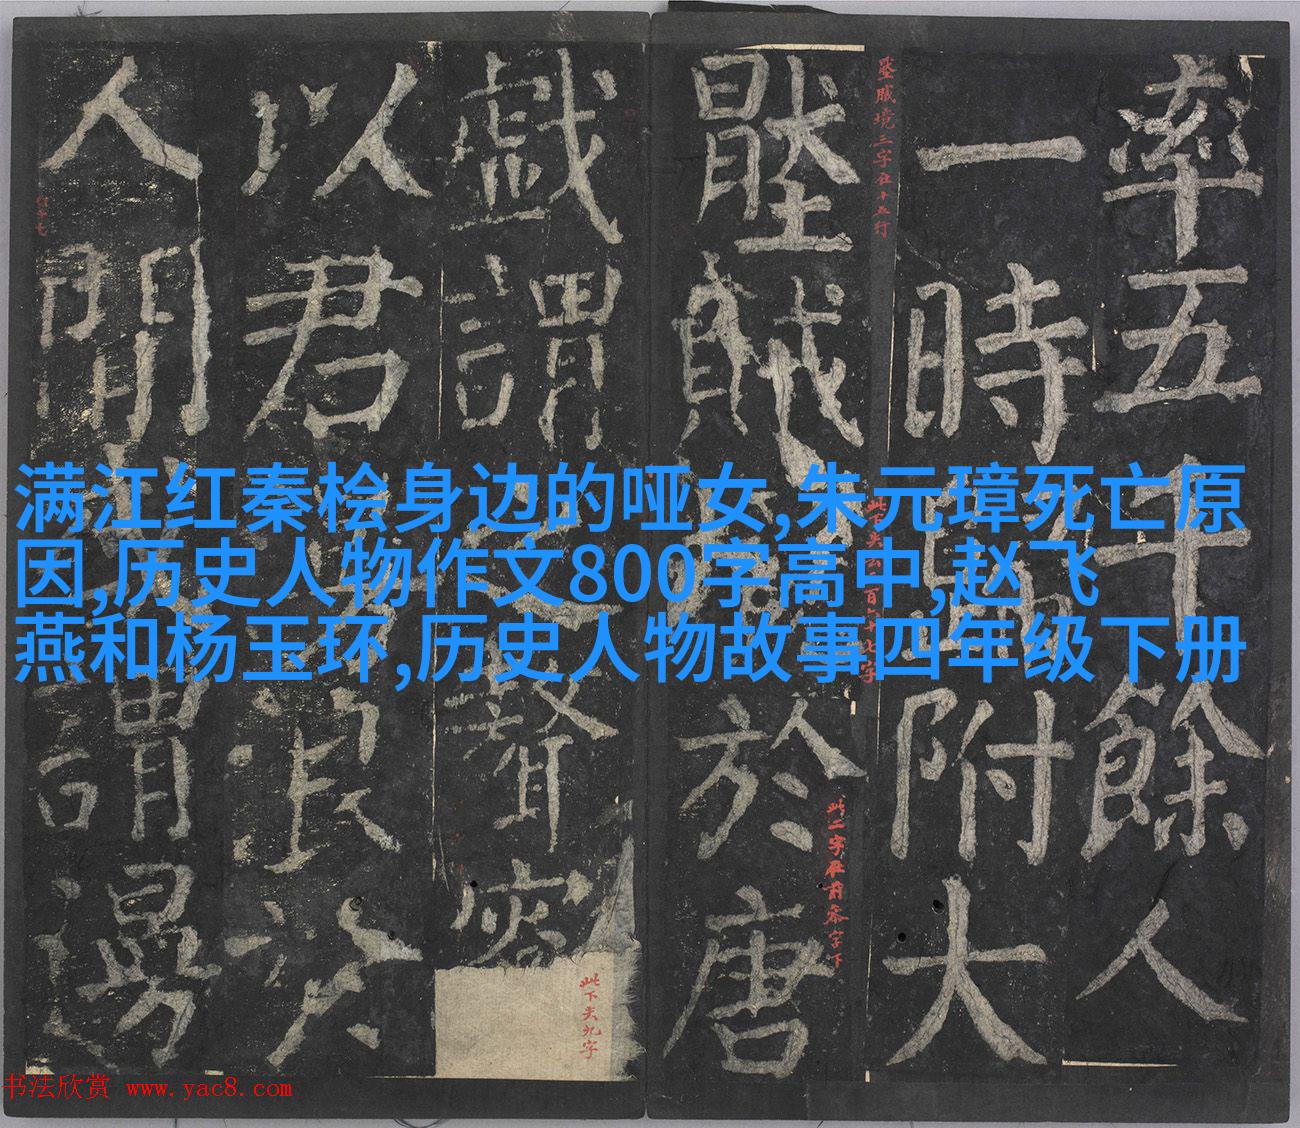 满江红秦桧身边的哑女,朱元璋死亡原
因,历史人物作文800字高中,赵飞
燕和杨玉环,历史人物故事四年级下册
率五千餘人
一時附大
壓賊於唐
戲謂聱
以君浪於
人間謂
壓賊境三字在十五行
此二字在前容字下
此下失九字
书法欣赏 www.yac8.com